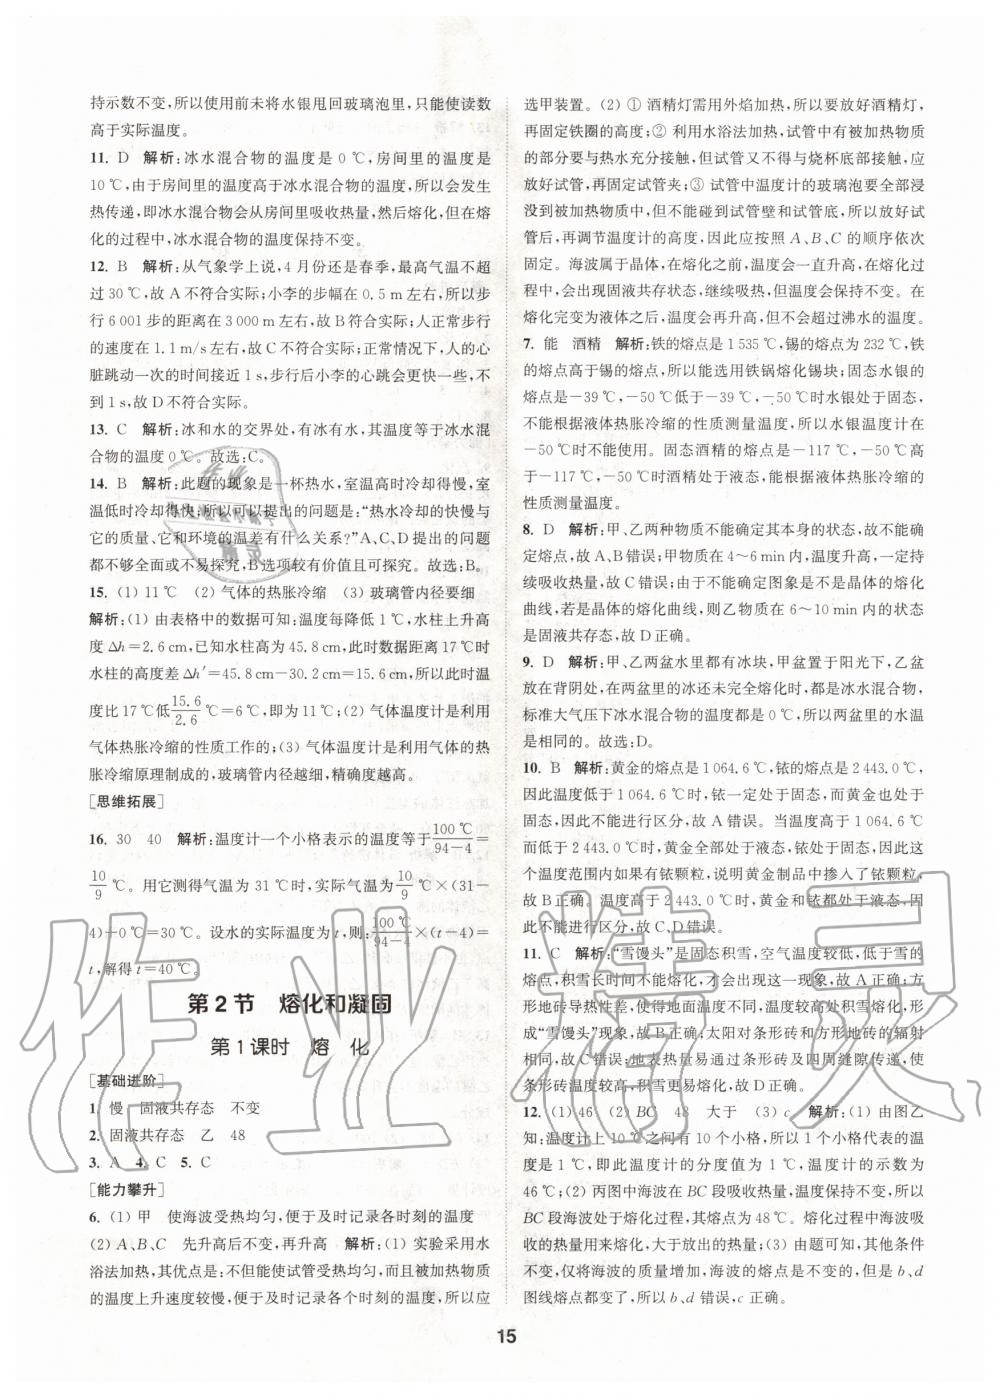 持示数不变,所以使用前未将水银甩回玻璃泡里,只能使读数
高于实际温度。
11. D 解析:冰水混合物的温度是 0 ℃,房间里的温度是
10 ℃,由于房间里的温度高于冰水混合物的温度,所以会发生
热传递,即冰水混合物会从房间里吸收热量,然后熔化,但在熔
化的过程中,冰水混合物的温度保持不变。
12. B 解析:从气象学上说,4 月份还是春季,最高气温不超
过 30 ℃,故 A 不符合实际;小李的步幅在 0.5 m 左右,所以步
行 6 001 步的距离在 3 000 m 左右,故 B 符合实际;人正常步行
的速度在 1.1 m/s 左右,故 C 不符合实际;正常情况下,人的心
脏跳动一次的时间接近 1 s,步行后小李的心跳会更快一些,不
到 1 s,故 D 不符合实际。
13. C 解析:冰和水的交界处,有冰有水,其温度等于冰水混
合物的温度 0 ℃。故选:C。
14. B 解析:此题的现象是一杯热水,室温高时冷却得慢,室
温低时冷却得快;所以可以提出的问题是:“热水冷却的快慢与
它的质量、它和环境的温差有什么关系?”A、C、D 提出的问题
都不够或不易探究,B 选项较有价值且可探究。故选:B。
15. (1) 11 ℃ (2) 气体的热胀冷缩 (3) 玻璃管内径要细
解析:(1) 由表格中的数据可知:温度每降低 1 ℃,水柱上升高
度 Δh=2.6 cm,已知水柱高为 45.8 cm,此时数据距离 17 ℃时
水柱的高度差 Δh′=45.8 cm-30.2 cm=15.6 cm,所以此时温
度比 17 ℃低 15.6/2.6 ℃=6 ℃,即为 11 ℃;(2) 气体温度计是利用
气体热胀冷缩的性质工作的;(3) 气体温度计是利用气体的热
胀冷缩原理制成的,玻璃管内径越细,精确度越高。
[思维拓展]
16. 30 40 解析:温度计一个小格表示的温度等于 100 ℃/94-4 =
10/9 ℃。用它测得气温为 31 ℃时,实际气温为 10/9 ℃×(31-
4)+0 ℃=30 ℃。设水的实际温度为 t,则:100 ℃/94-4 ×(t-4)=
t,解得 t=40 ℃。
第 2 节 熔化和凝固
第 1 课时 熔 化
[基础进阶]
1. 慢 固液共存态 不变
2. 固液共存态 乙 48
3. A 4. C 5. C
[能力攀升]
6. (1) 甲 使海波受热均匀,便于及时记录各时刻的温度
(2) A、B、C 先升高后不变,再升高 解析:(1) 实验采用水
浴法加热,其优点是:不但能使试管均匀受热,而且被加热物质
的温度上升速度较慢,便于及时记录各个时刻的温度,所以应
选甲装置。(2) ① 酒精灯需用外焰加热,所以要放好酒精灯,
再固定铁圈的高度;② 利用水浴法加热,试管中装有被加热物质
的部分要与热水充分接触,但试管又不能与烧杯底部接触,应
放好试管,再固定试管夹;③ 试管中温度计的玻璃泡要全部浸
没到被加热物质中,但不能碰到试管壁和试管底,所以放好试
管后,再调节温度计的高度,因此应按照 A、B、C 的顺序依次
固定。海波属于晶体,在熔化之前,温度会一直升高,在熔化过程
中,会出现固液共存状态,继续吸热,但温度会保持不变。在
熔化完变为液体之后,温度会再升高,但不会超过沸水的温度。
7. 能 酒精 解析:铁的熔点是 1 535 ℃,锡的熔点为 232 ℃,铁
的熔点高于锡的熔点,所以能用铁锅熔化锡块;固态水银的
熔点是-39 ℃,-50 ℃低于-39 ℃,-50 ℃时水银处于固态,
不能根据液体热胀冷缩的性质测量温度,所以水银温度计在
-50 ℃时不能使用。固态酒精的熔点是-117 ℃,-50 ℃高
于-117 ℃,-50 ℃时酒精处于液态,能根据液体热胀冷缩的
性质测量温度。
8. D 解析:甲、乙两种物质不能确定其本身的状态,故不能确
定熔点,故 A、B 错误;甲物质在 4~6 min 内,温度升高,一定持
续吸收热量,故 C 错误;由于不能确定图象是不是晶体的熔化
曲线,若是晶体的熔化曲线,则乙物质在 6~10 min 内的状态
是固液共存态,故 D 正确。
9. D 解析:甲、乙两盆水里都有冰块,甲盆置于阳光下,乙盆
放在背阴处,在两盆里的冰还未完全熔化时,都是冰水混合物,
标准大气压下冰水混合物的温度都是 0 ℃,所以两盆里的水温
是相同的。故选:D。
10. B 解析:黄金的熔点是 1 064.6 ℃,铱的熔点是 2 443.0 ℃,
因此温度低于 1 064.6 ℃时,铱一定处于固态,而黄金也处于
固态,不能进行区分,故 A 错误。当温度高于 1 064.6 ℃
而低于 2 443.0 ℃时,黄金全部熔化,铱处于固态,因此在这个
温度范围内如果有铱颗粒,说明黄金制品中掺入了铱颗粒,
故 B 正确。温度高于 2 443.0 ℃时,黄金和铱都处于液态,因
此不能进行区分,故 C、D 错误。
11. C 解析:“雪馒头”是固态积雪,空气温度较低,低于雪的
熔点,积雪长时间不能熔化,才会有这一现象,故 A 正确;方
形地砖导热性差异,使得地面温度不同,温度高处积雪熔化,形
成“雪馒头”现象,故 B 正确;太阳对条形砖和方形砖的辐射
相同,故 C 错误;地表热量易通过条形砖及四周缝隙传递,使
条形砖温度较高,积雪更易熔化,故 D 正确。
12. (1) 46 (2) BC 48 大于 (3) c 解析:(1) 由图乙
知:温度计上 10 ℃之间有 10 个小格,所以 1 个小格代表的温
度是 1 ℃,即此温度计的分度值为 1 ℃,温度计的示数为
46 ℃;(2) 丙图中海波在 BC 段吸收热量,温度保持不变,所以
BC 段海波处于熔化过程,其熔点为 48 ℃。熔化过程中海波吸
收的热量用来熔化,大于放出的热量;(3) 由题可知,其他条件
不变,仅将海波的质量增加,海波的熔点是不变的,而 b、d
图线熔点都变了,所以 b、d 错误,c 正确。
15
作业精灵